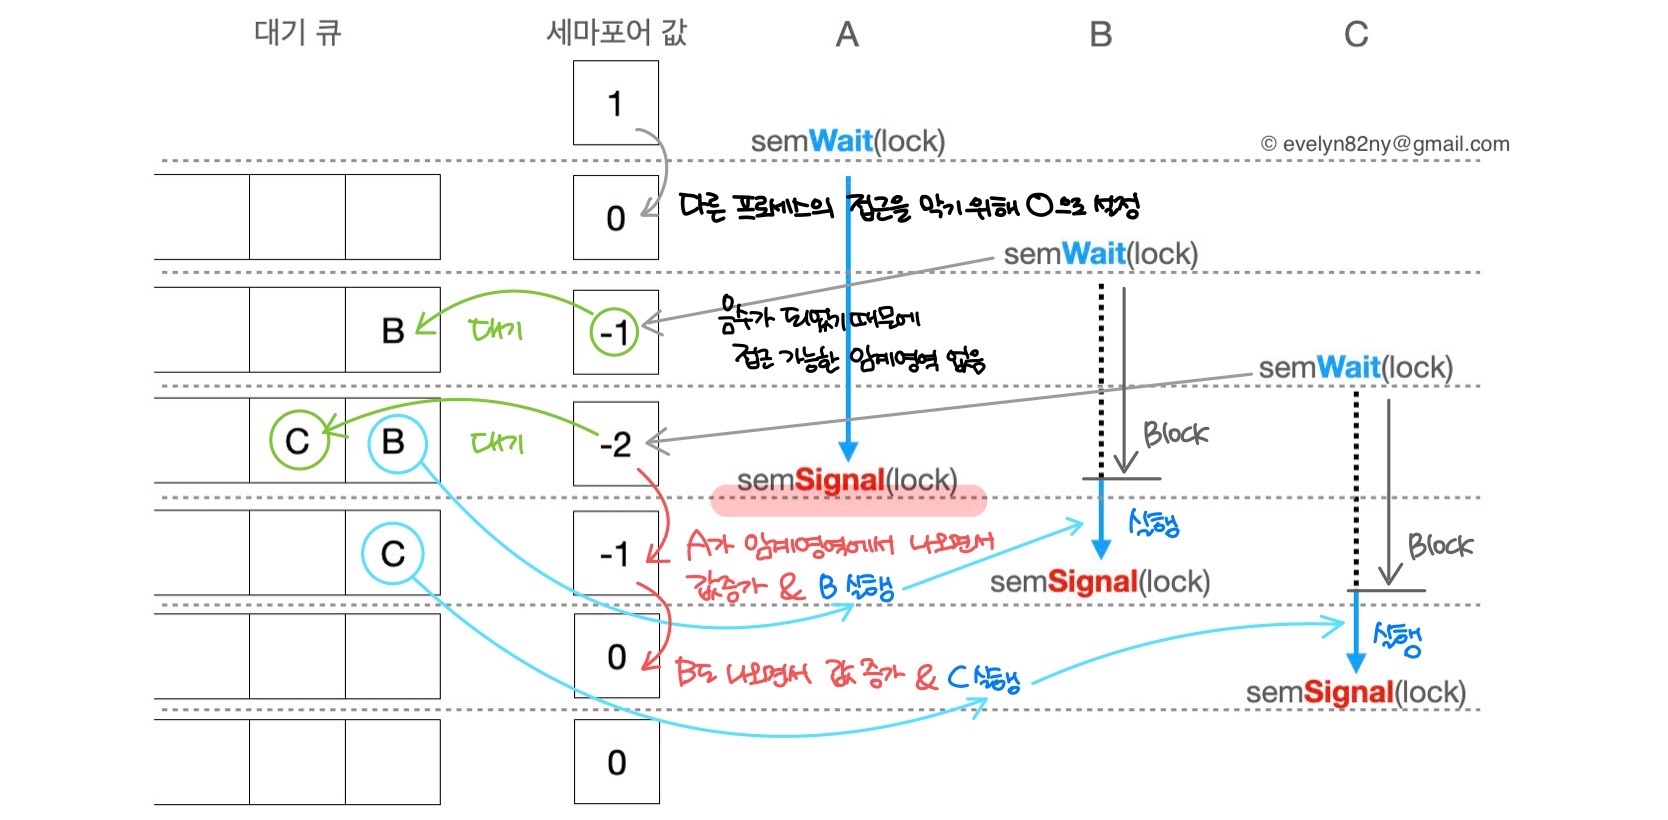 대기 큐 세마포어 값 A B C
1
semWait(lock) © evelyn82ny@gmail.com
0 다른 프로세스의 접근을 막기위해 0으로 설정
semWait(lock)
B 대기 -1 음수가 되었기때문에
접근 가능한 임계영역 없음
semWait(lock)
C B 대기 -2 Block
semSignal(lock)
실행
C -1 A가 임계영역에서 나오면서 Block
값증가 & B 실행 semSignal(lock)
실행
0 B도 나오면서 값 증가 & C 실행
semSignal(lock)
0